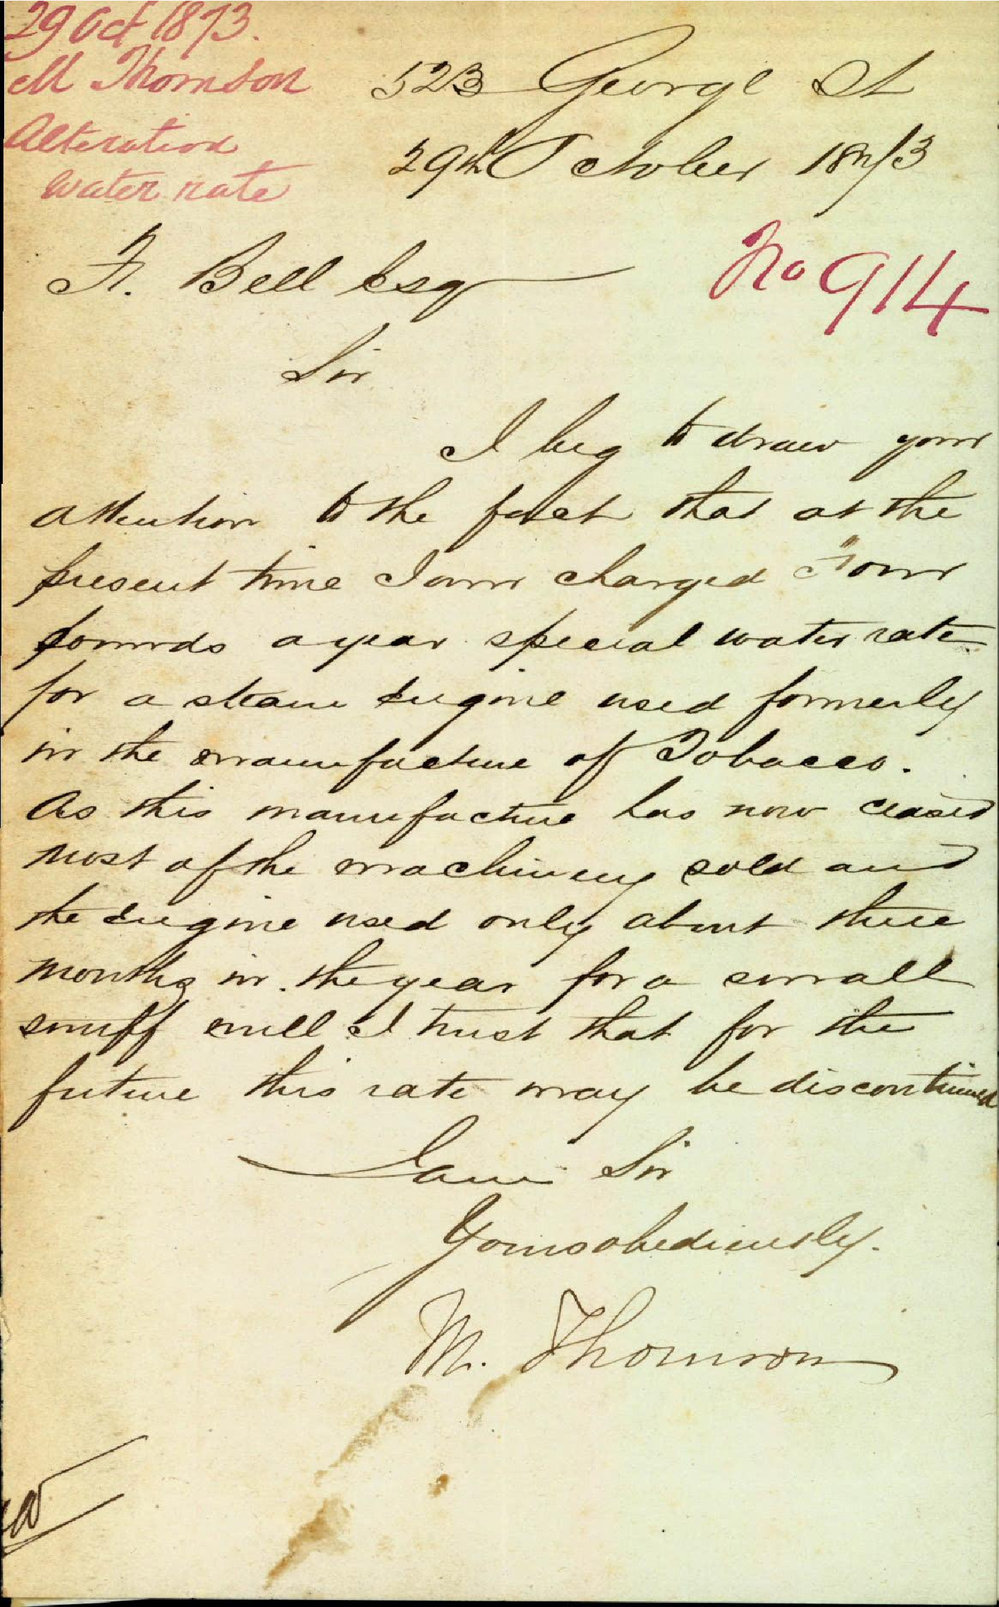 29 Oct 1873.
M Thomson
Alteration
water rate
523 George St
29th October 1873
F. Bell Esq
No 914
Sir
I beg to draw your
attention to the fact that at the
present time I am charged Four
pounds a year special water rate
for a steam Engine used formerly
in the manufacture of Tobacco.
As this manufacture has now ceased
most of the machinery sold and
the Engine used only about three
months in the year for a small
snuff mill I trust that for the
future this rate may be discontinued
I am Sir
Yours obediently.
M. Thomson